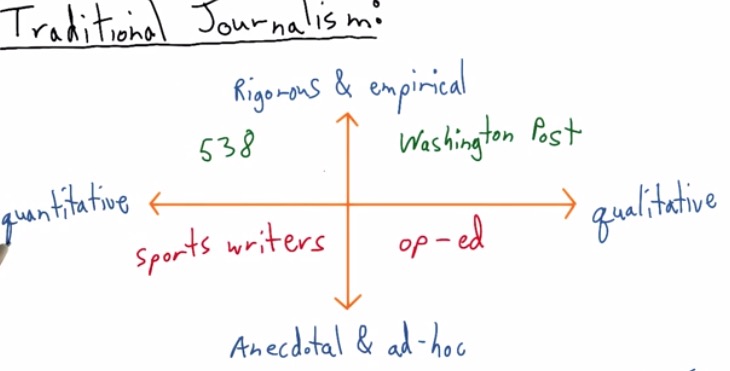 Traditional Journalism:
Rigorous & empirical
538
Washington Post
quantitative
qualitative
sports writers
op-ed
Anecdotal & ad-hoc